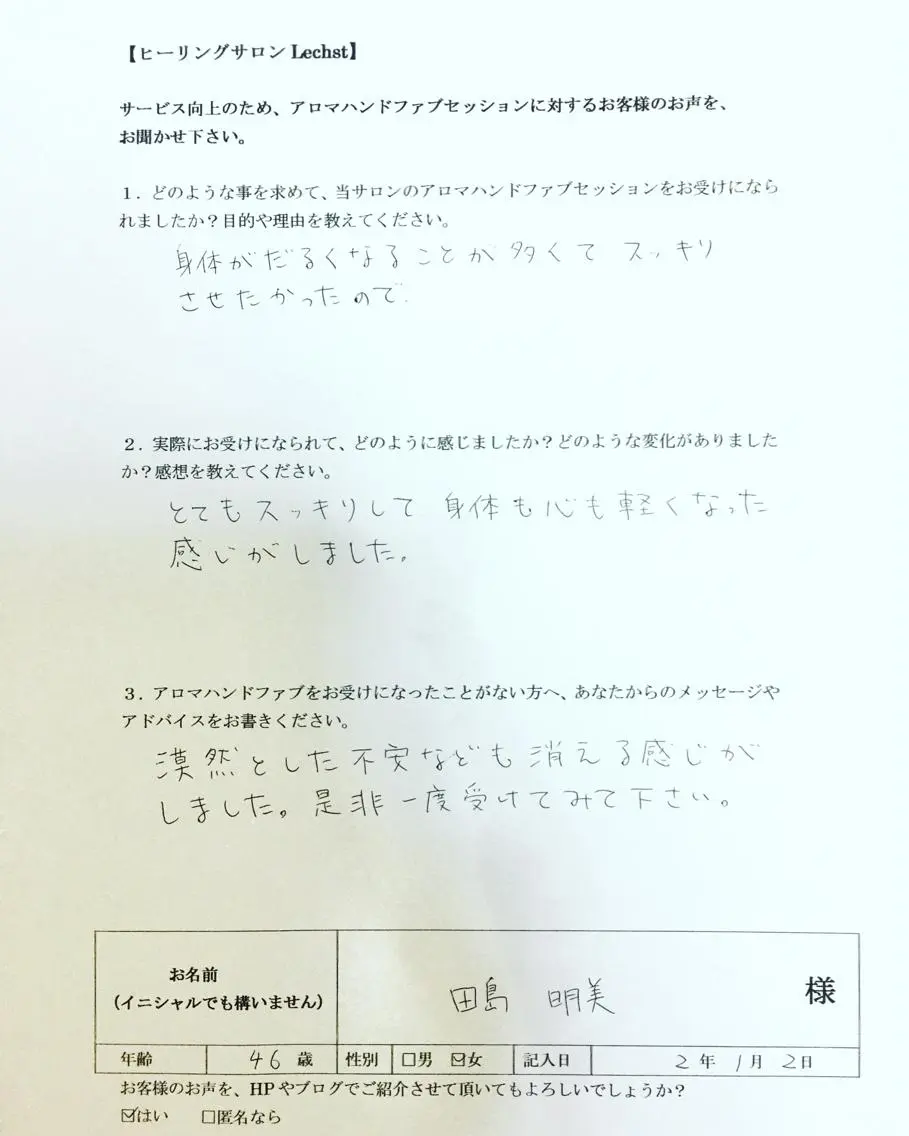 【ヒーリングサロン Lechst】
サービス向上のため、アロマハンドファブセッションに対するお客様のお声を、
お聞かせ下さい。
1．どのような事を求めて、当サロンのアロマハンドファブセッションをお受けになら
れましたか？目的や理由を教えてください。
身体がだるくなることが多くて スッキリ
させたかったので.
2．実際にお受けになられて、どのように感じましたか？どのような変化がありました
か？感想を教えてください。
とてもスッキリして 身体も心も軽くなった
感じがしました。
3．アロマハンドファブをお受けになったことがない方へ、あなたからのメッセージや
アドバイスをお書きください。
漠然とした不安なども消える感じが
しました。是非一度受けてみて下さい。
お名前
(イニシャルでも構いません)
田島 明美 様
年齢 46 歳 性別 □男 ☑女 記入日 2 年 1 月 2 日
お客様のお声を、HP やブログでご紹介させて頂いてもよろしいでしょうか？
☑はい □匿名なら